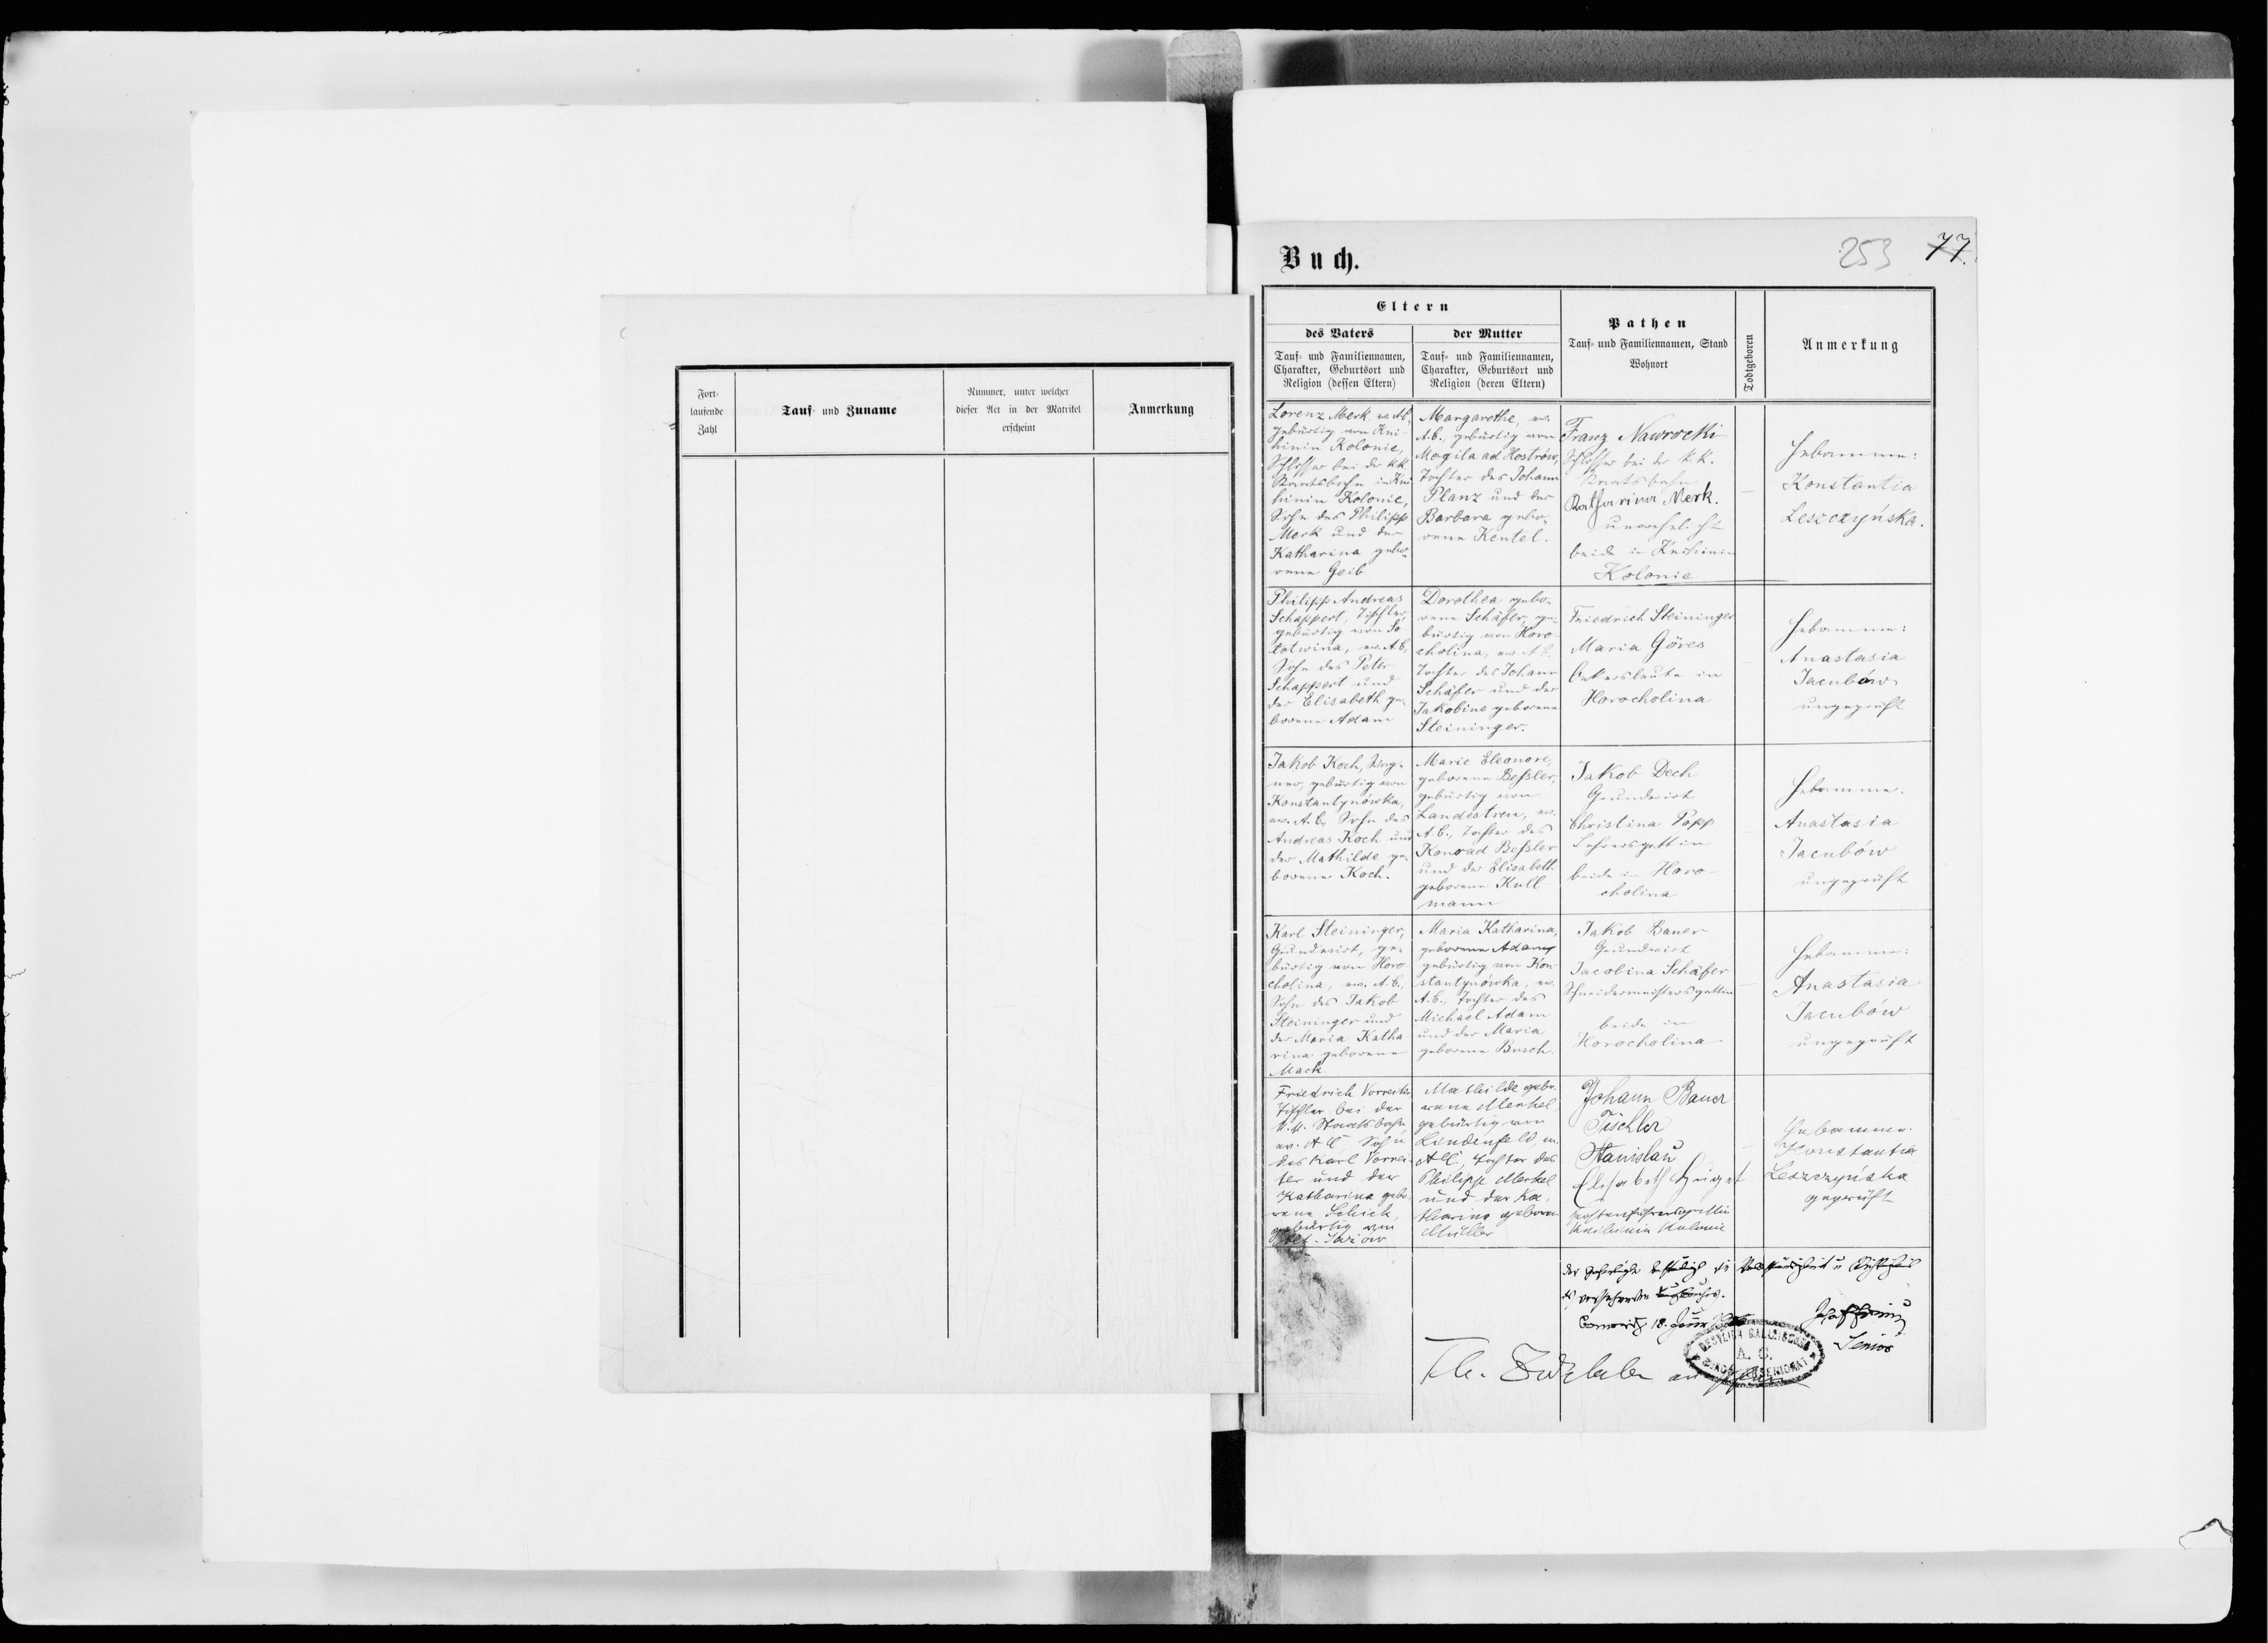 Fort-
laufende
Zahl
Tauf- und Zuname
Nummer, unter welcher
dieser Act in der Matrikel
erscheint
Anmerkung
Buch.
253 77.
Eltern
des Vaters
Tauf- und Familiennamen,
Charakter, Geburtsort und
Religion (dessen Eltern)
der Mutter
Tauf- und Familiennamen,
Charakter, Geburtsort und
Religion (deren Eltern)
Pathen
Tauf- und Familiennamen, Stand
Wohnort
Todtgeboren
Anmerkung
Lorenz Merk ev. A.C.,
gebürtig von Kni-
hinin Kolonie,
Schlosser bei der kk.
Staatsbahn in Kni
hinin Kolonie,
Sohn des Philipp
Merk und der
Katharina gebo-
rene Geib
Margarethe, ev.
A.C., gebürtig von
Mogila ad Hostrów,
Tochter des Johann
Planz und der
Barbara gebo-
rene Kentel.
Franz Nawrocki
Schlosser bei der k.k.
Staatsbahn
Katharina Merk.
unverehelicht
beide in Knihinin
Kolonie
Hebamme:
Konstantia
Leszczyńska.
Philipp Andreas
Schappert, Tischler,
gebürtig von So-
lotwina, ev. A.C.
Sohn des Peter
Schappert und
der Elisabeth ge-
borene Adam
Dorothea gebo-
rene Schäfer, ge-
bürtig von Horo-
cholina, ev. A.C.
Tochter des Johann
Schäfer und der
Jakobine geborene
Steininger.
Friedrich Steininger
Maria Göres
Ackersleute in
Horocholina
Hebamme:
Anastasia
Jacubów
ungeprüft
Jakob Koch,
gebürtig von
Konstantynówka,
ev. A.C., Sohn des
Andreas Koch und
der Mathilde ge-
borene Koch.
Marie Eleonore,
geborene Beßler,
gebürtig von
Landestreu, ev.
A.C., Tochter des
Konrad Beßler
und der Elisabeth
geborene Kull
mann
Jakob Dech
Grundwirt
Christina Popp
Lehrersgattin
beide in Horo-
cholina
Hebamme:
Anastasia
Jacubów
ungeprüft
Karl Steininger,
Grundwirt, ge-
bürtig von Horo-
cholina, ev. A.C.,
Sohn des Jakob
Steininger und
der Maria Katha-
rina geborene
Mack.
Maria Katharina,
geborene Adam,
gebürtig von Kon-
stantynówka, ev.
A.C., Tochter des
Michael Adam
und der Maria
geborene Busch.
Jakob Bauer
Grundwirt
Jacobina Schäfer
Schneidermeistersgattin
beide in
Horocholina
Hebamme:
Anastasia
Jacubów
ungeprüft
Friedrich Vorreiter
Tischler bei der
k.k. Staatsbahn,
ev. A C Sohn
des Karl Vorrei-
ter und der
Katharina gebo-
rene Schick,
gebürtig von
Mathilde gebo-
rene Merkel,
gebürtig von
Lindenfeld ev.
A C, Tochter des
Philipp Merkel
und der Ka-
tharina geboren
Müller
Johann Bauer
Tischler
Stanislau
Elisabeth Huget
Knihinin Kolonie
Hebamme:
Konstantia
Leszczyńska
geprüft
18.
Senior
A. C.